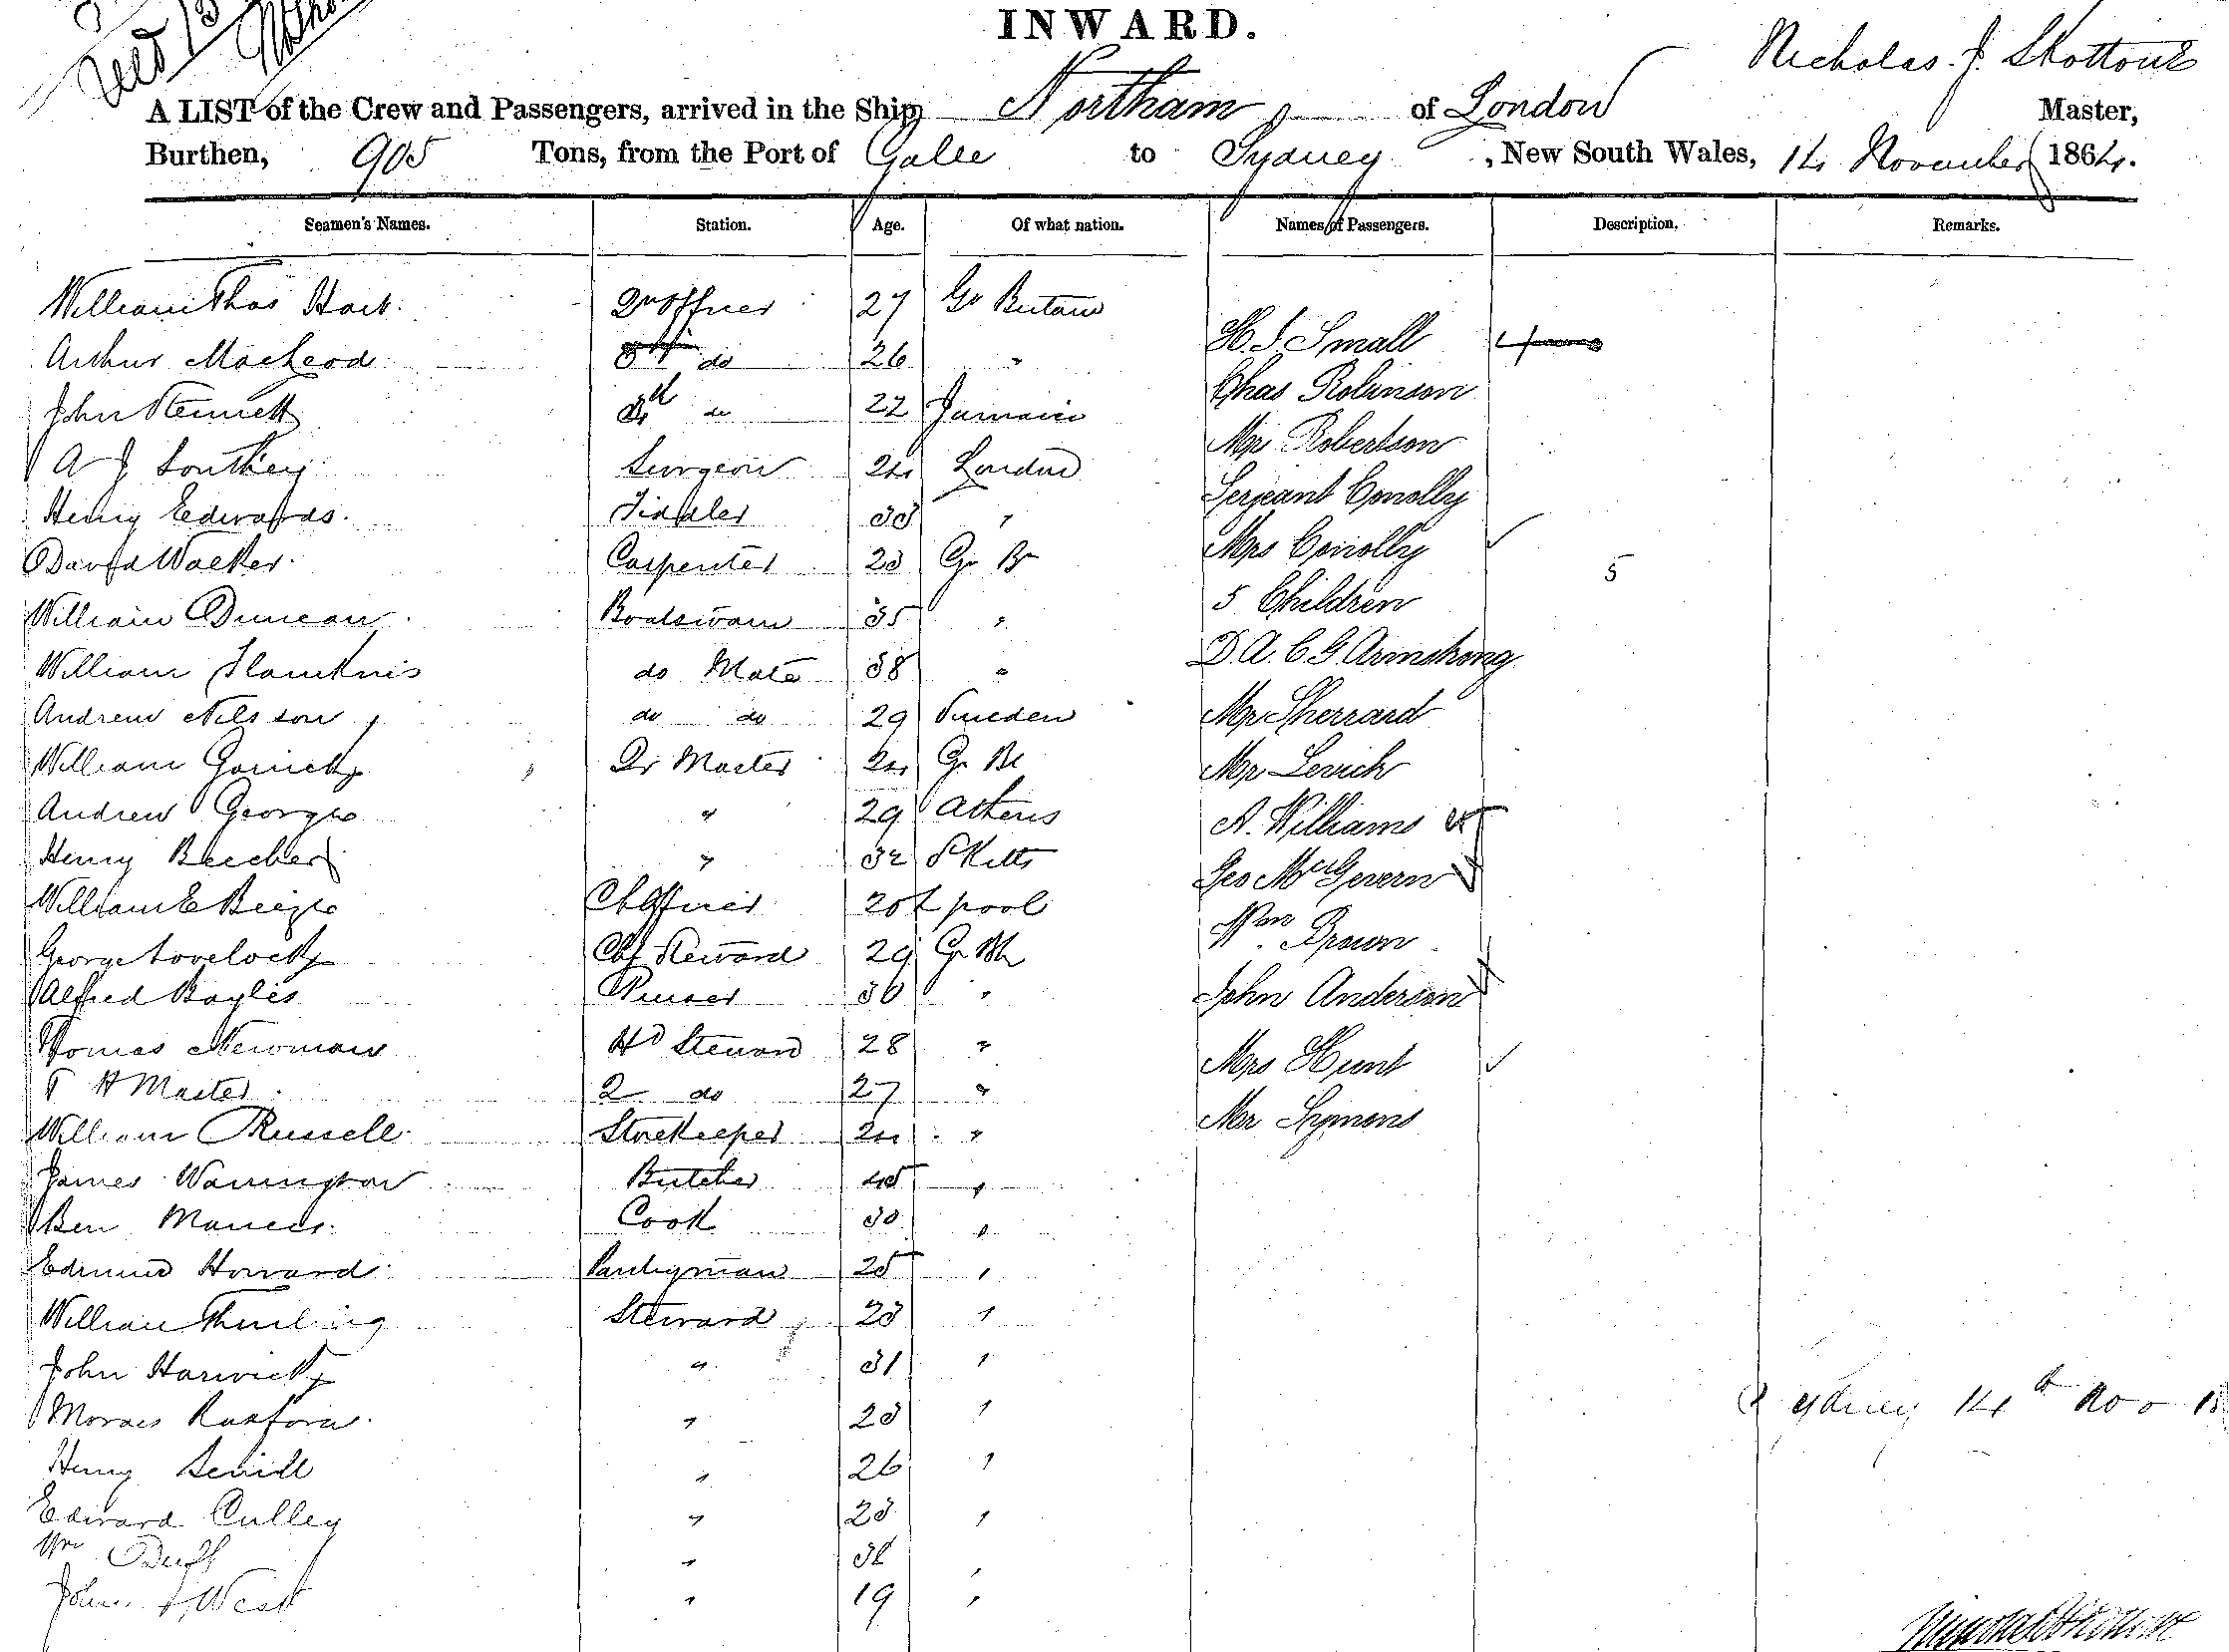 INWARD.
Nicholas J. Skottowe
A LIST of the Crew and Passengers, arrived in the Ship Northam of London Master,
Burthen, 905 Tons, from the Port of Galle to Sydney, New South Wales, 14 November 1864.
Seamen's Names. Station. Age. Of what nation. Names of Passengers. Description. Remarks.
William Thos 27 Gr Britain
H. J. Small
Arthur MacLeod do 26 "
Chas Robinson
John Stennett 4th do 22 Jamaica
Mr Robertson
A J Southey Surgeon 24 London
Serjeant Conolly
Henry Edwards. Fiddler 33 "
Mrs Conolly
David Walker. Carpenter 23 Gr Br
5
5 Children
William Duncan Boatswain 35 "
D. A. C. G. Armstrong
William do Mate 38 "
Andrew Nilsson do do 29 Sweden
Mr Sherrard
William Garrick Qr Master 24 Gr Br
Mr Levich
Andrew George " 29 Athens
A. Williams
Henry Beecher " 32 St Kitts
Geo McGevern
William E Ch Officer 20 L pool
Wm Brown
George Lovelock Chf Steward 29 Gr Br
Alfred Bayles Purser 36 "
John Anderson
Thomas Newman Hd Steward 28 "
Mrs Hunt
T H Master 2 do 27 "
Mr Symons
William Russell Storekeeper 24 "
James Warrington Butcher 45 "
Ben Cook 30 "
Edmund Howard Pantryman 25 "
William Steward 23 "
John Harwick " 31 "
Sydney 14th Nov 18
" 23 "
Henry " 26 "
Edward Culley " 23 "
Wm Duff " "
West " 19 "